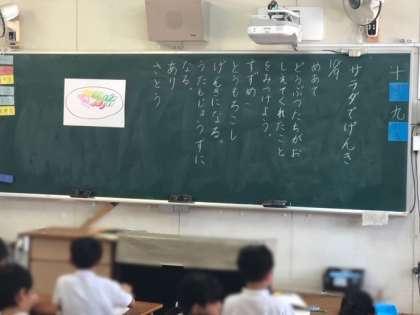 十
九
サラダでげんき
めあて
どうぶつたちがお
しえてくれたこと
をみつけよう。
すずめ
とうもろこし
げんきになる。
うたもじょうずに
なる。
あり
さとう